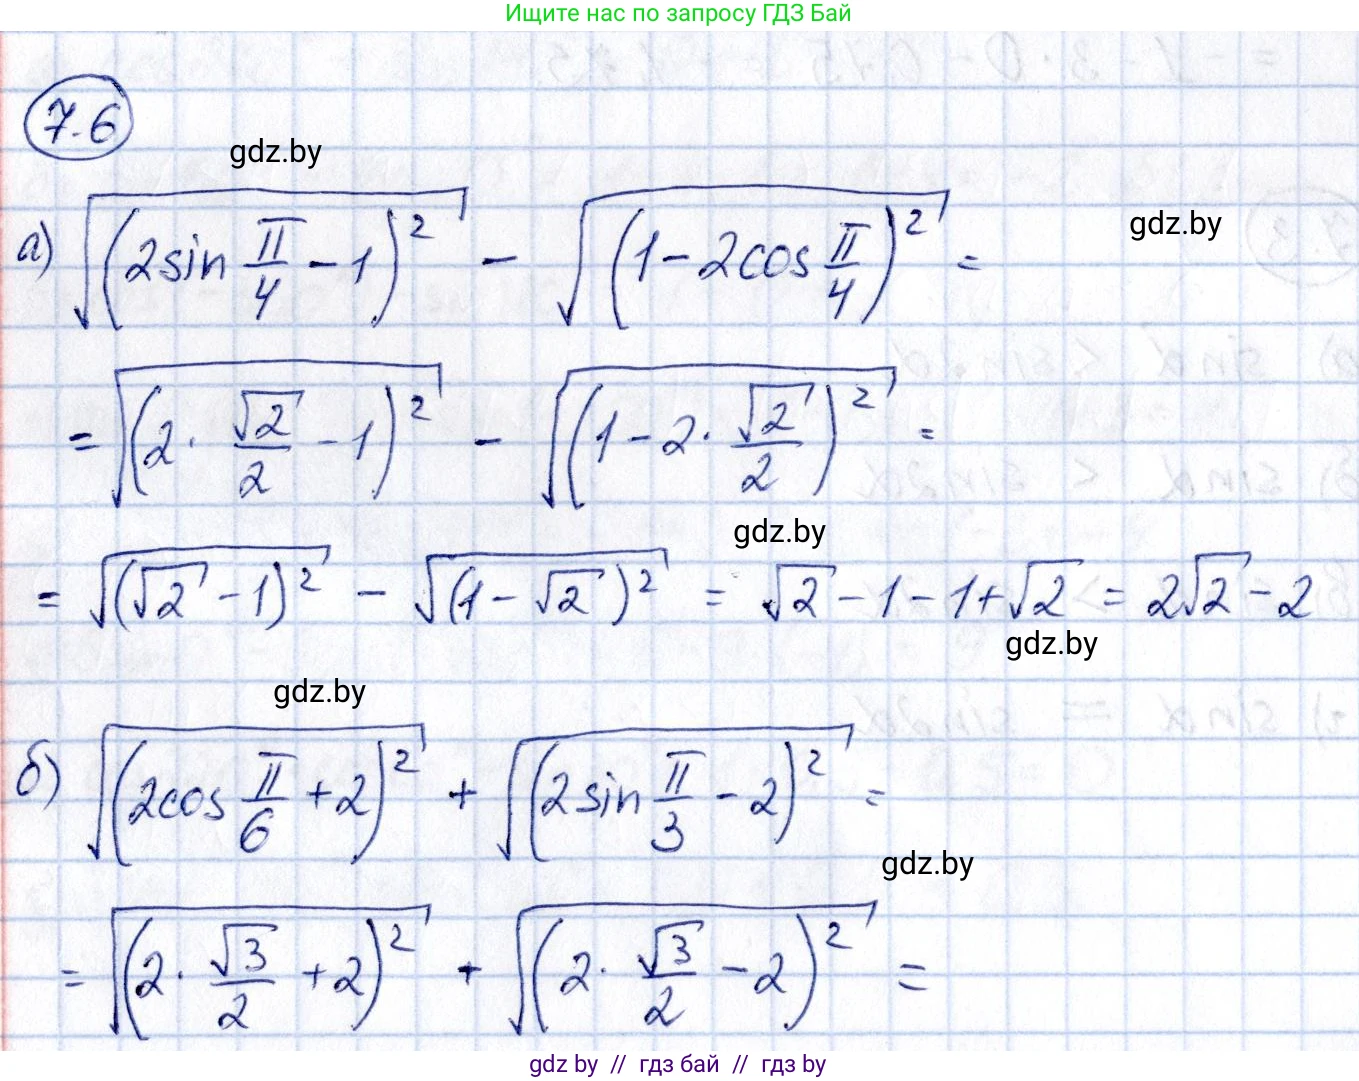 Ищите нас по запросу ГДЗ Бай
7.6
gdz.by
а) √((2sin π/4 - 1)²) - √((1 - 2cos π/4)²) =
gdz.by
= √((2 · √2/2 - 1)²) - √((1 - 2 · √2/2)²) =
gdz.by
= √((√2 - 1)²) - √((1 - √2)²) = √2 - 1 - 1 + √2 = 2√2 - 2
gdz.by
gdz.by
б) √((2cos π/6 + 2)²) + √((2sin π/3 - 2)²) =
gdz.by
= √((2 · √3/2 + 2)²) + √((2 · √3/2 - 2)²) =
gdz by // гдз бай // гдз by